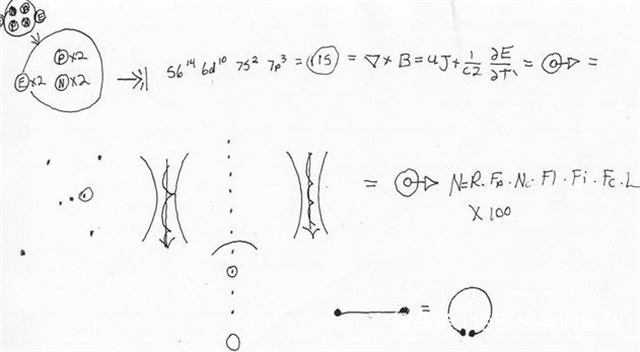 P N N P E E
P x2
E x2 N x2
56¹⁴ 6d¹⁰ 7s² 7p³ = 115 = ▽ × B = uJ + 1/c2 ∂E/∂t =
= N=R. Fp. Ne. Fl. Fi. Fc. L
X 100
=